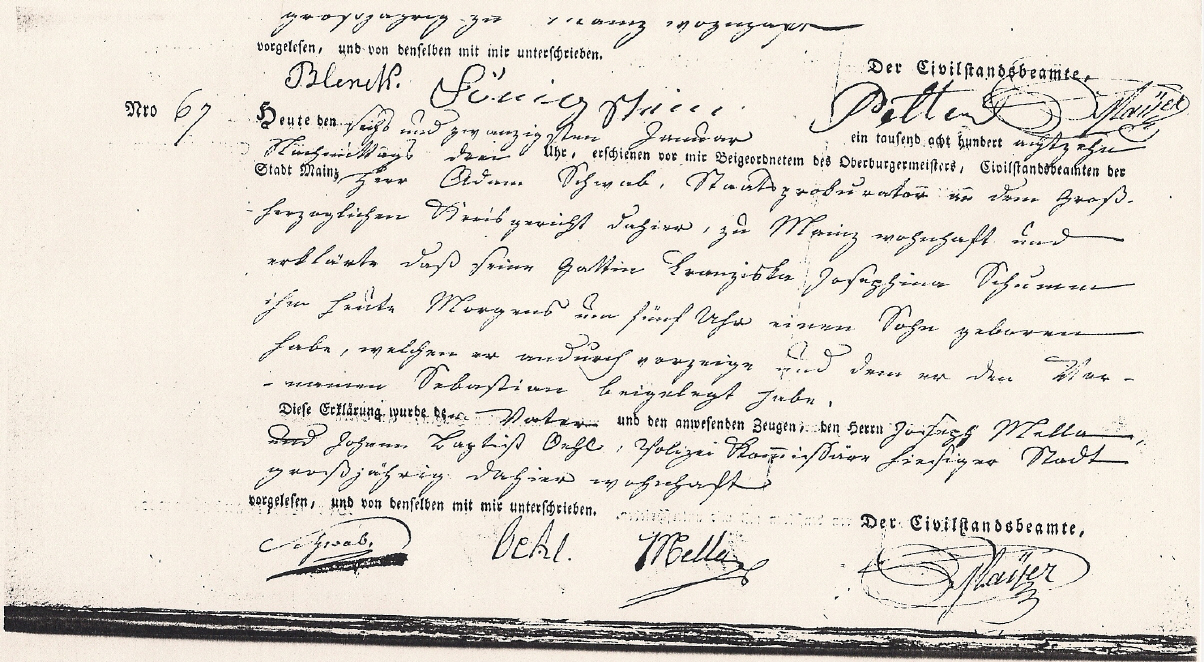 großjährig zu Mainz wohnhaft
vorgelesen, und von denselben mit mir unterschrieben.
Der Civilstandsbeamte,
Nro 67
Heute den sechs und zwanzigsten Januar ein tausend acht hundert achtzehn
Nachmittags drei Uhr, erschienen vor mir Beigeordnetem des Oberburgermeisters, Civilstandsbeamten der
Stadt Mainz Herr Adam Schwab, Staatsprokurator an dem Groß-
herzoglichen Kreisgericht dahier, zu Mainz wohnhaft und
erklärte daß seine Gattin Franziska Josephina Schumm
ihm heute Morgens um fünf Uhr einen Sohn geboren
habe, welchen er andurch vorzeige und dem er den Vor-
-namen Sebastian beigelegt habe.
Diese Erklärung wurde dem Vater und den anwesenden Zeugen, den Herrn Joseph Mella,
und Johann Baptist Oehl, Polizei Kommissäre hiesiger Stadt
großjährig dahier wohnhaft
vorgelesen, und von denselben mit mir unterschrieben.
Der Civilstandsbeamte,
Schwab. Oehl. Mella